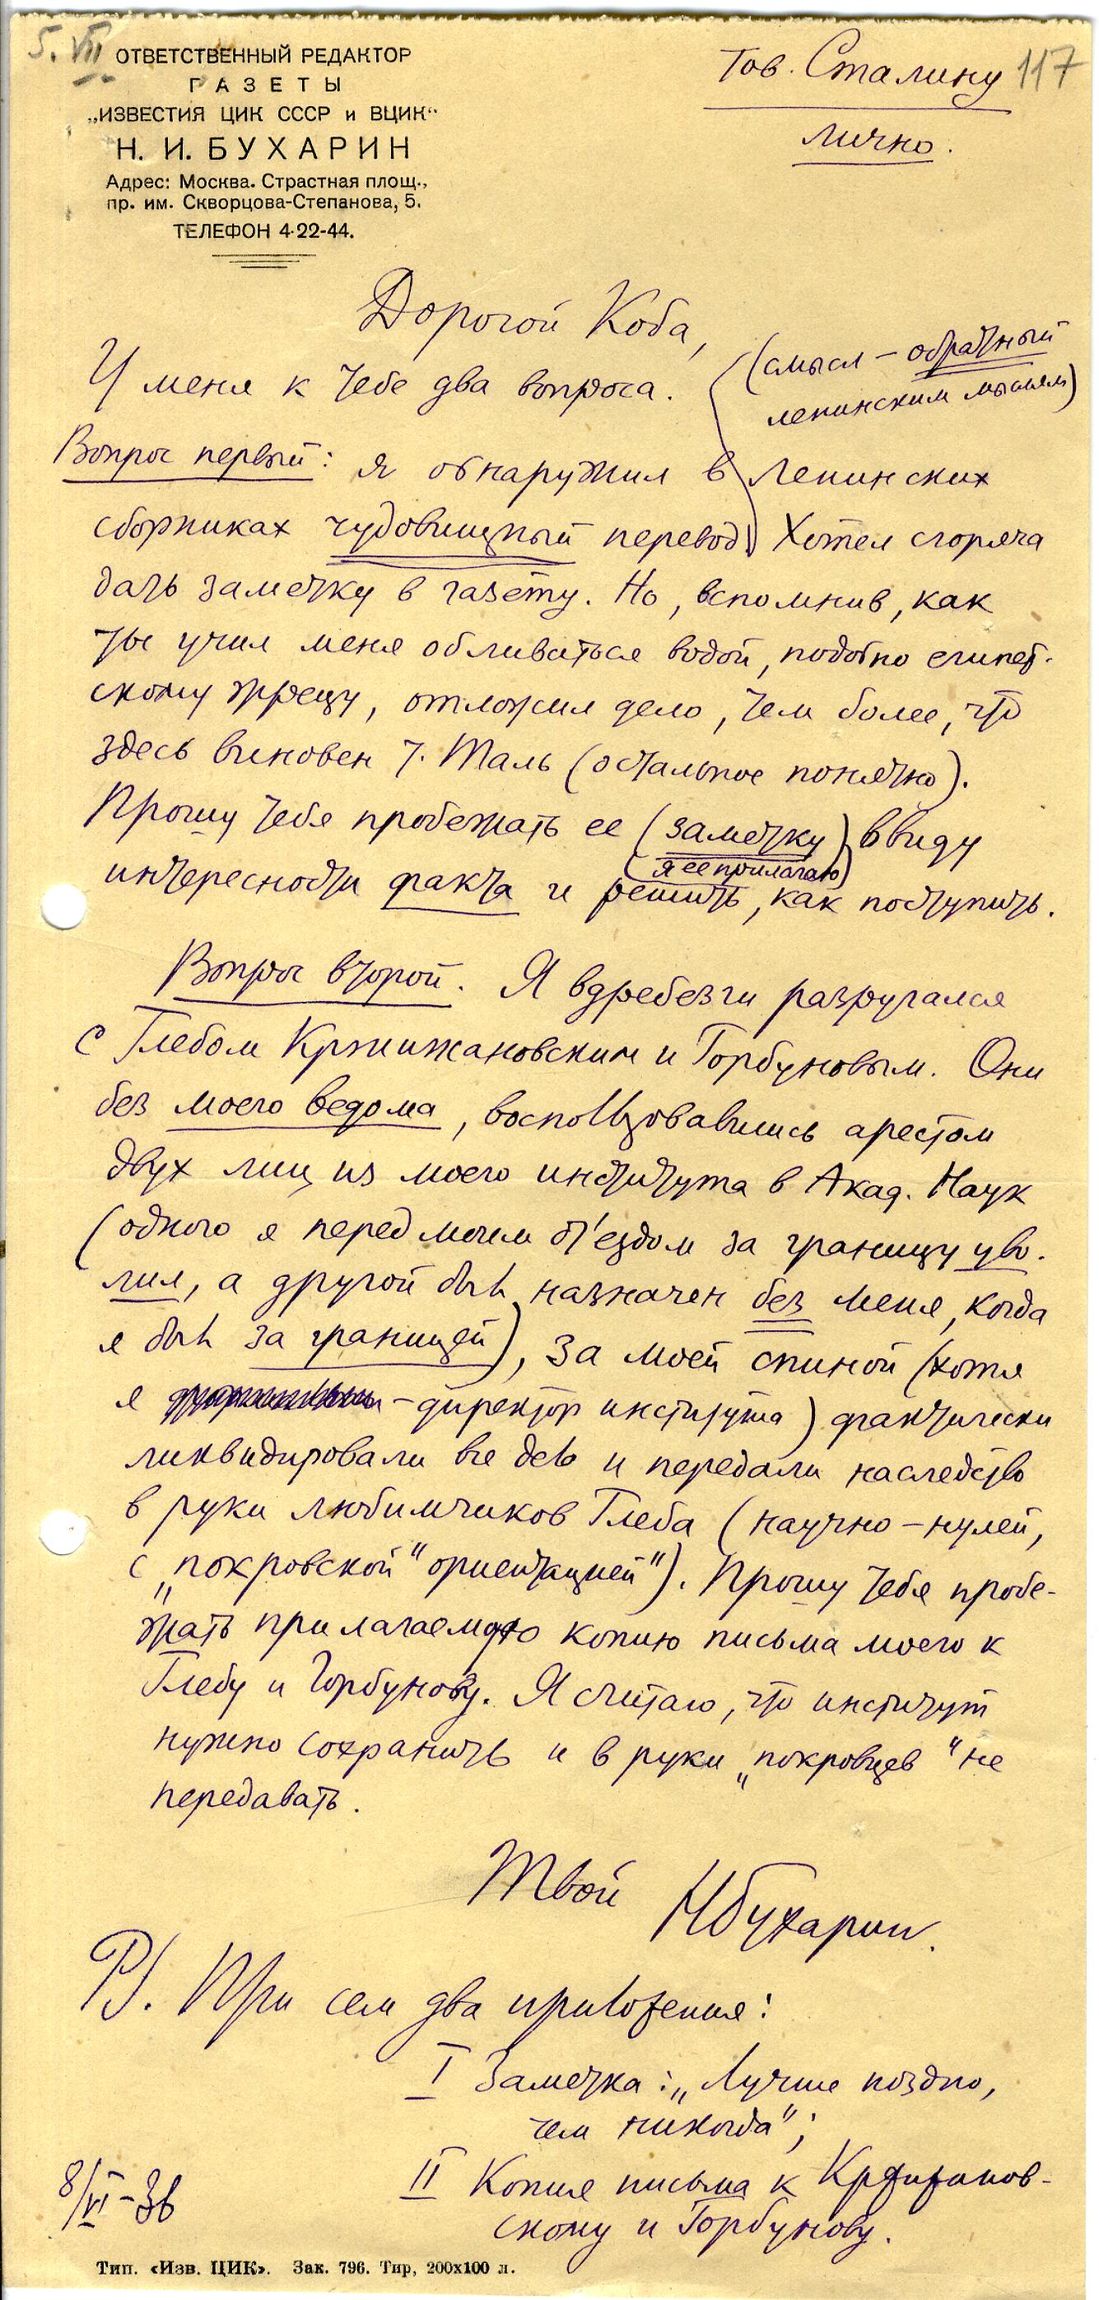 5. VII
ОТВЕТСТВЕННЫЙ РЕДАКТОР
ГАЗЕТЫ
„ИЗВЕСТИЯ ЦИК СССР и ВЦИК“
Н. И. БУХАРИН
Адрес: Москва. Страстная площ.,
пр. им. Скворцова-Степанова, 5.
ТЕЛЕФОН 4-22-44.
Тов. Сталину 117
лично.
Дорогой Коба,
У меня к тебе два вопроса.
(смысл – обратный
ленинским мыслям)
Вопрос первый: я обнаружил в Ленинских
сборниках чудовищный перевод. Хотел сгоряча
дать заметку в газету. Но, вспомнив, как
ты учил меня обливаться водой, подобно египет-
скому жрецу, отложил дело, тем более, что
здесь виновен т. Таль (остальное понятно).
Прошу тебя пробежать ее (заметку) ввиду
(я ее прилагаю)
интересности факта и решить, как поступить.
Вопрос второй. Я вдребезги разругался
с Глебом Кржижановским и Горбуновым. Они
без моего ведома, воспользовавшись арестом
двух лиц из моего института в Акад. Наук
(одного я перед моим от'ездом за границу уво-
лил, а другой был назначен без меня, когда
я был за границей), за моей спиной (хотя
я – директор института) фактически
ликвидировали все дело и передали наследство
в руки любимчиков Глеба (научно – нулей,
с „покровской“ ориентацией“). Прошу тебя пробе-
жать прилагаемую копию письма моего к
Глебу и Горбунову. Я считаю, что институт
нужно сохранить и в руки „покровцев“ не
передавать.
Твой НБухарин.
PS. При сем два приложения:
I Заметка: „Лучше поздно,
чем никогда“;
II Копия письма к Кржижанов-
скому и Горбунову.
8/VI–36
Тип. «Изв. ЦИК». Зак. 796. Тир. 200х100 л.